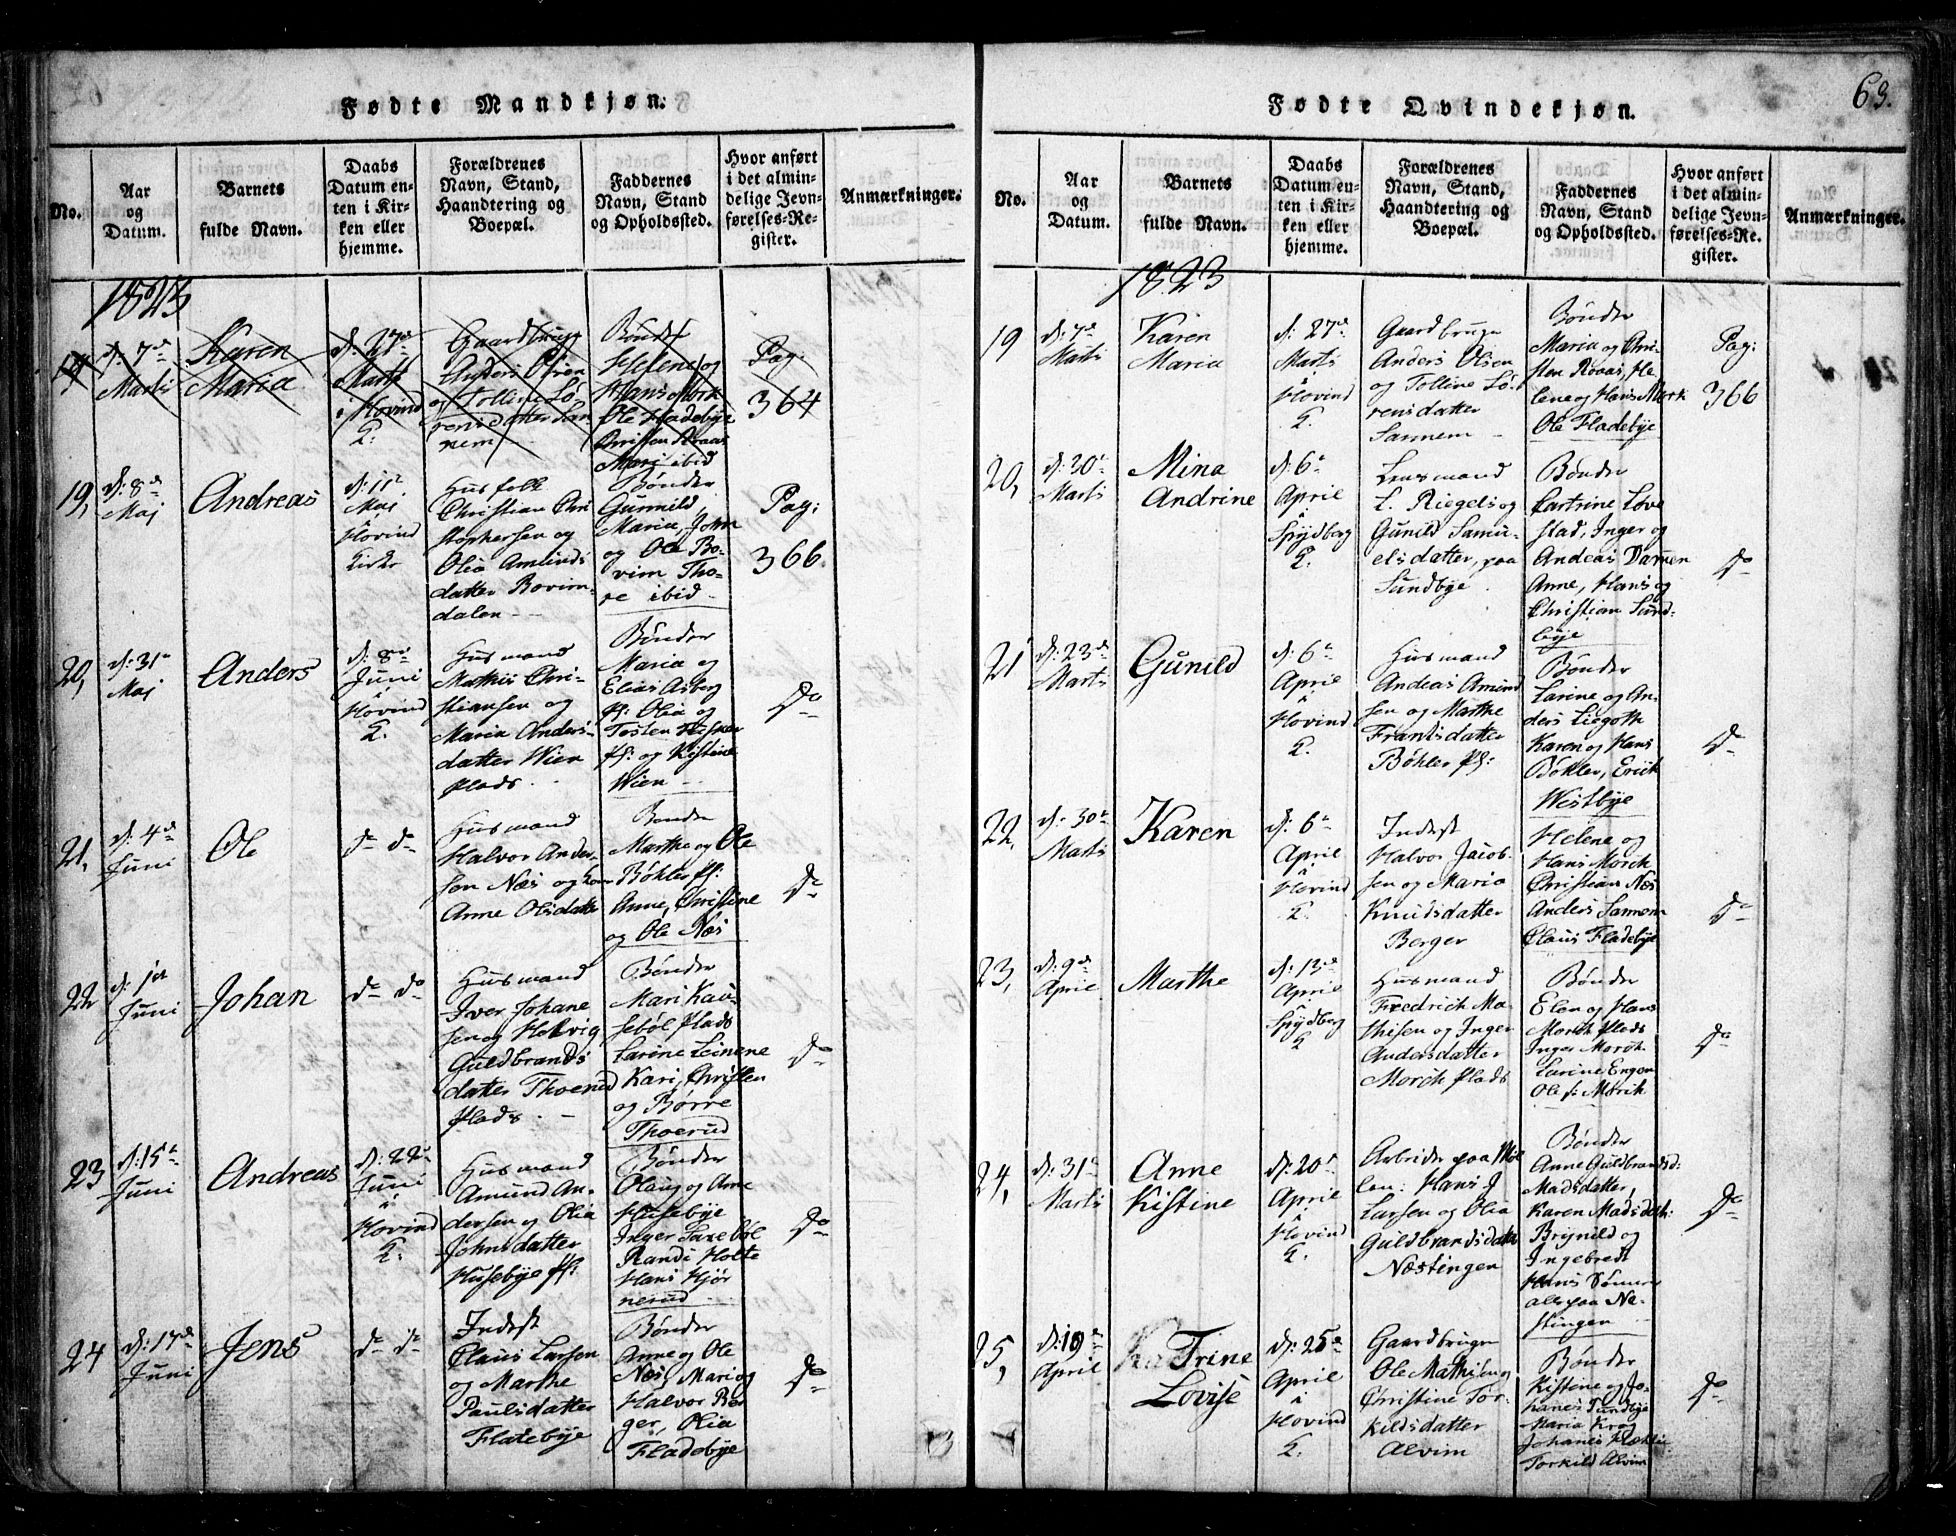 63.
Fødte Mandkjøn.
No.
Aar
og
Datum.
Barnets
fulde Navn.
Daabs
Datum en-
ten i Kir-
ken eller
hjemme.
Forældrenes
Navn, Stand,
Haandtering og
Boepæl.
Faddernes
Navn, Stand
og Opholdssted.
Hvor anført
i det almin-
delige Jevn-
førelses-Re-
gister.
Anmærkninger.
1823
d: 7de
Marti
Karen
Maria
d. 27de
Marti
i Hovind
K.
Gaardbruger
Anders Olsen
og Tolline Sø-
rensdatter San-
nem
Bønder
Helene og
Hans Mork
Ole Fladebye
Christen Raaas
Mari ibid
Pag:
364
19,
d: 8de
Maj
Andreas
d: 11te
Maj
i
Hovind
Kirke
Husfolk
Christian Chri
stophersen og
Olia Amunds
datter Bovim-
dalen
Bønder
Gunnild,
Maria, John
og Ole Bo-
vim Tho-
re ibid
Pag:
366
20,
d: 31te
Maj
Anders
d: 8de
Juni
i
Hovind
K.
Husmand
Mathis Chri-
stiansen og
Maria Anders-
datter Wien
plads
Bønder
Maria og
Elias Asberg
pl: Olia og
Tosten
pl: og Kistine
Wien
Do
21,
d: 4de
Juni
Ole
do do
Husmand
Halvor Ander-
sen Næs og Kone
Anne Olsdatter
Bønder
Marthe og Ole
Bøhler pl:
Anne, Christine
og Ole Næs
Do
22
d: 1ste
Juni
Johan
do do
Husmand
Iver Johane
sen og Helvig
Guldbrands
datter Thoerud
plads
Bønder
Mari Kau-
sebøl plads
Larine Leinene
Kari, Christen
og Børre
Thoerud
Do
23
d: 15de
Juni
Andreas
d: 22de
Juni
i
Hovind
K.
Husmand
Amund An-
dersen og Olia
Johnsdatter
Husebye pl:
Bønder
Olaug og Anne
Husebye
Inger Taxebøl
Randi Holte
Hans Kjør
nerud
Do
24
d: 17de
Juni
Jens
do do
Inderst
Claus Larsen
og Marthe
Paulsdatter
Flatebye
Bønder
Anne og Ole
Næs, Mari og
Halvor Ber
ger, Olia
Fladebye
Do
Fødte Qvindekjøn.
No.
Aar
og
Datum.
Barnets
fulde Navn.
Daabs
Datum en-
ten i Kir-
ken eller
hjemme.
Forældrenes
Navn, Stand,
Haandtering og
Boepæl.
Faddernes
Navn, Stand
og Opholdssted.
Hvor anført
i det almin-
delige Jevn-
førelses-Re-
gister.
Anmærkninger.
1823
19
d: 7de
Marti
Karen
Maria
d: 27de
Marts
i
Hovind
K.
Gaardbruger
Anders Olsen
og Tolline Sø-
rensdatter
Sannem
Bønder
Maria og Chri-
sten Raaas, He-
lene og Hans Mork
Ole Fladebye
Pag:
366
20,
d: 30te
Marti
Mina
Andrine
d: 6te
April
i
Spydberg
K.
Lensmand
L. Riegels og
Gunild Samu-
elsdatter, paa
Sundbye
Bønder
Cartrine Løve
stad, Inger og
Andeas Damen
Anne, Hans og
Christian Sund-
bye
Do
21
d: 23de
Marti
Gunild
d: 6te
April
i
Hovind
K.
Husmand
Andeas Amund
sen og Marthe
Frantsdatter
Bøhler pl:
Bønder
Larine og An-
ders Liegoth
Karen og Hans
Bøhler, Erich
Westbye
Do
22,
d: 30te
Marti
Karen
d: 6te
April
i
Hovind
K.
Inderst
Halvor Jacob-
sen og Maria
Knudsdatter
Berger
Helene og
Hans Morch
Christian Næs
Anders Sannem
Claus Fladebye
Do
23,
d: 9de
April
Marthe
d: 13de
April
i
Spydberg
K
Husmand
Fredrich Ma-
thisen og Inger
Andersdatter
Morch plads
Bønder
Elen og Hans
Morch plads
Inger Morch
Larine Engen
Ole pl: Morch
Do
24,
d: 31te
Marti
Anne
Kistine
d: 20de
April
i
Hovind
K.
Arbeider paa Møl
len: Hans J
Larsen og Olia
Guldbrandsdatter
Næstingen
Bønder
Anne Guldbrandsd:
Madsdatter,
Karen Madsdatt:
Brynild og
Ingebredt
Hans
alle paa Ne-
stingen
Do
25,
d: 19de
April
Trine
Lovise
d: 25de
April
i
Hovind
K.
Gaardbruger
Ole Mathisen og
Christine Tor-
kildsdatter
Alvim
Bønder
Kistine og Jo-
hanes Sundbye
Maria Krog
Johanes
Torkild Alvim
Do